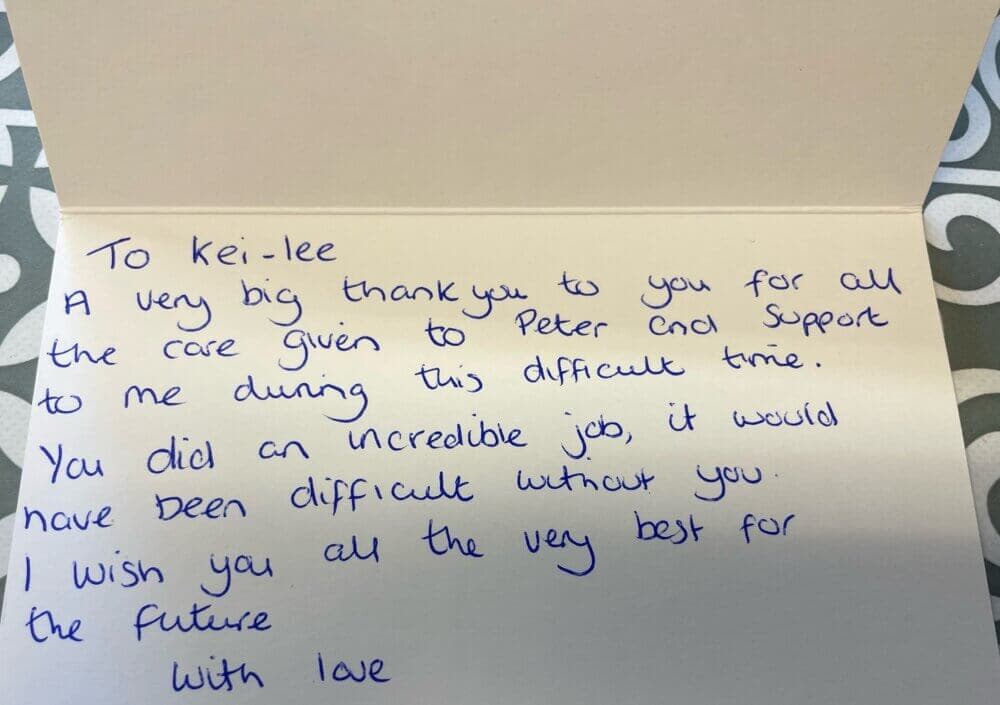 To Kei-lee
A very big thank you to you for all
the care given to Peter and Support
to me during this difficult time.
You did an incredible job, it would
have been difficult without you.
I wish you all the very best for
the future
With love